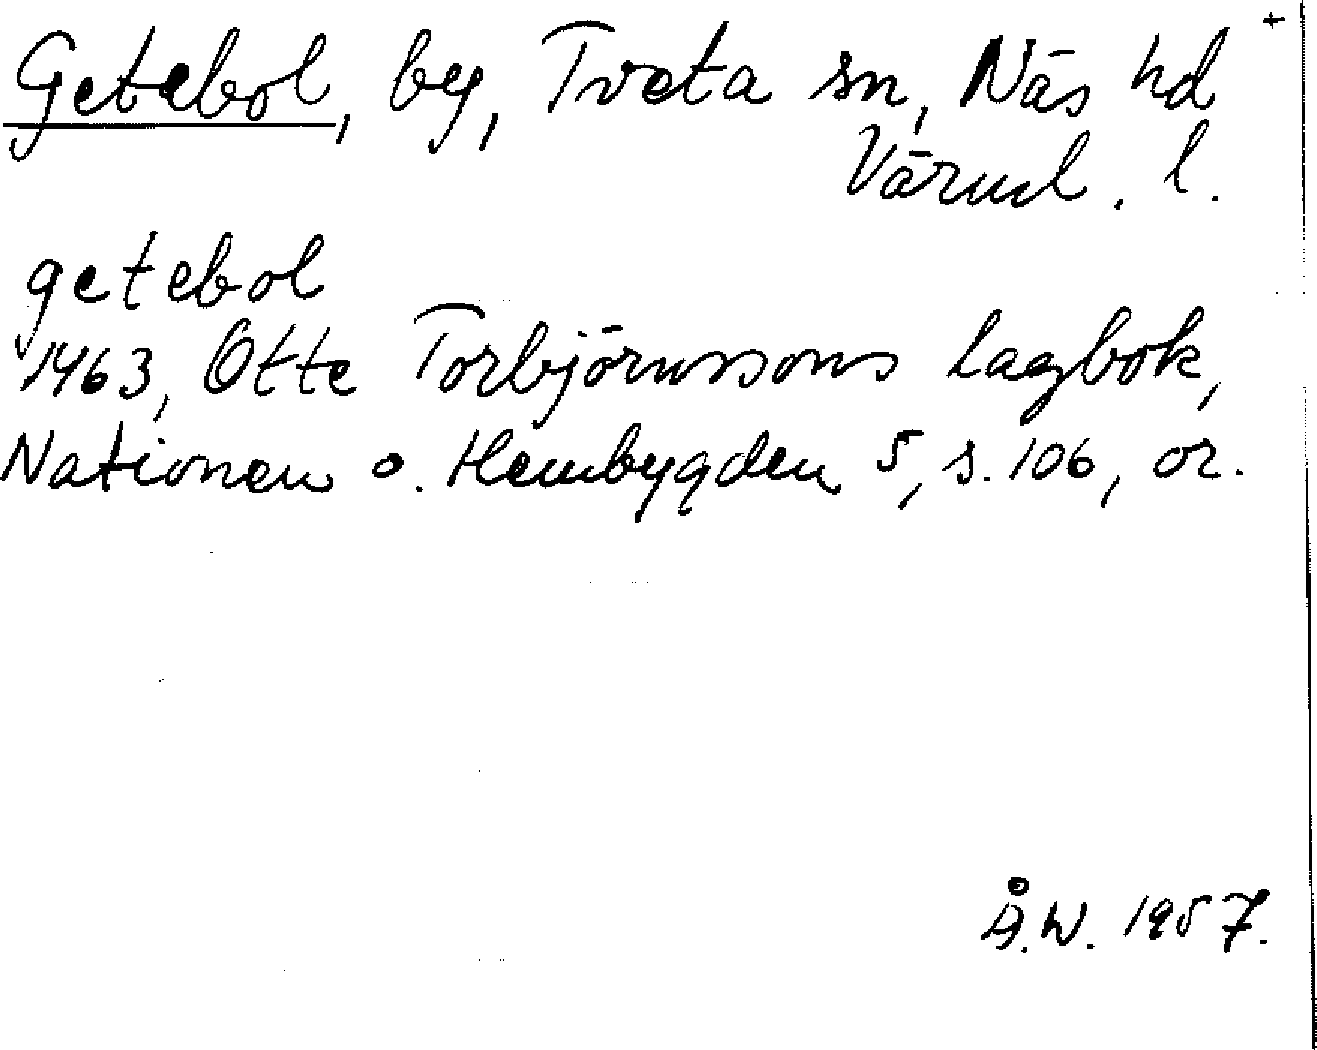 Getebol, by, Tveta sn, Näs hd +
Värml. l.
getebol
1463, Otte Torbjörnssons Lagbok,
Nationen o. Hembygden 5, s. 106, or.
Å.W. 1957.